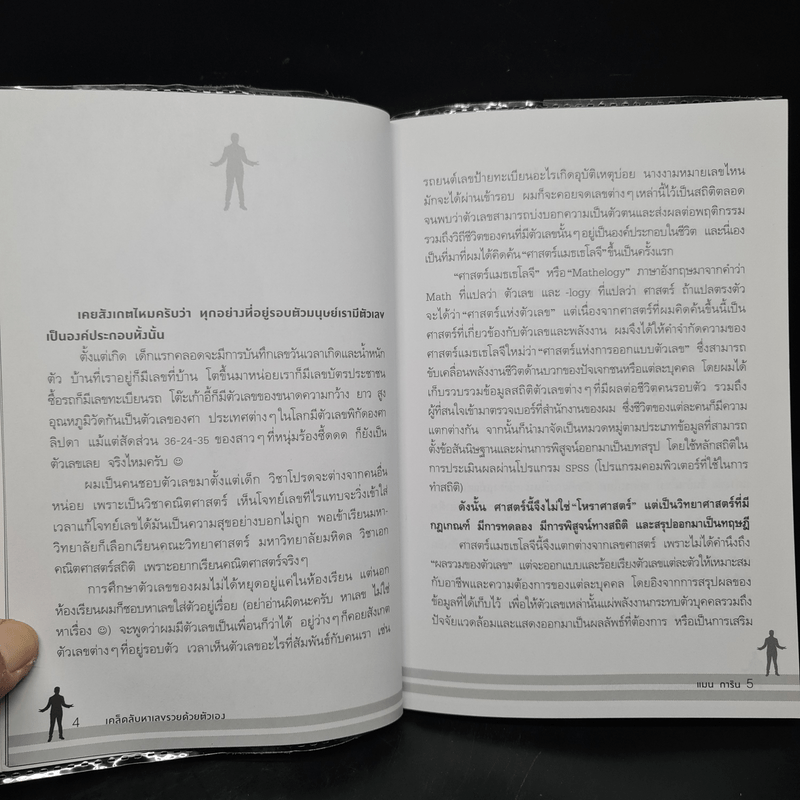 เคยสังเกตไหมครับว่า ทุกอย่างที่อยู่รอบตัวมนุษย์เรามีตัวเลข
เป็นองค์ประกอบทั้งนั้น
ตั้งแต่เกิด เด็กแรกคลอดจะมีการบันทึกเลขวันเวลาเกิดและน้ำหนัก
ตัว บ้านที่เราอยู่ก็มีเลขที่บ้าน โตขึ้นมาหน่อยเราก็มีเลขบัตรประชาชน
ซื้อรถก็มีเลขทะเบียนรถ โต๊ะเก้าอี้ก็มีตัวเลขของขนาดความกว้าง ยาว สูง
อุณหภูมิวัดกันเป็นตัวเลของศา ประเทศต่างๆ ในโลกมีตัวเลขพิกัดองศา
ลิปดา แม้แต่สัดส่วน 36-24-35 ของสาวๆ ที่หนุ่มร้องซี้ดดด ก็ยังเป็น
ตัวเลขเลย จริงไหมครับ ☺
ผมเป็นคนชอบตัวเลขมาตั้งแต่เด็ก วิชาโปรดจะต่างจากคนอื่น
หน่อย เพราะเป็นวิชาคณิตศาสตร์ เห็นโจทย์เลขทีไรแทบจะวิ่งเข้าใส่
เวลาแก้โจทย์เลขได้มันเป็นความสุขอย่างบอกไม่ถูก พอเข้าเรียนมหา-
วิทยาลัยก็เลือกเรียนคณะวิทยาศาสตร์ มหาวิทยาลัยมหิดล วิชาเอก
คณิตศาสตร์สถิติ เพราะอยากเรียนคณิตศาสตร์จริงๆ
การศึกษาตัวเลขของผมไม่ได้หยุดอยู่แค่ในห้องเรียน แต่นอก
ห้องเรียนผมก็ชอบหาเลขใส่ตัวอยู่เรื่อย (อย่าอ่านผิดนะครับ หาเลข ไม่ใช่
หาเรื่อง ☺) จะพูดว่าผมมีตัวเลขเป็นเพื่อนก็ว่าได้ อยู่ว่างๆ ก็คอยสังเกต
ตัวเลขต่างๆ ที่อยู่รอบตัว เวลาเห็นตัวเลขอะไรที่สัมพันธ์กับคนเรา เช่น
4 เคล็ดลับหาเลขรวยด้วยตัวเอง
รถยนต์เลขป้ายทะเบียนอะไรเกิดอุบัติเหตุบ่อย นางงามหมายเลขไหน
มักจะได้ผ่านเข้ารอบ ผมก็จะคอยจดเลขต่างๆ เหล่านี้ไว้เป็นสถิติตลอด
จนพบว่าตัวเลขสามารถบ่งบอกความเป็นตัวตนและส่งผลต่อพฤติกรรม
รวมถึงวิถีชีวิตของคนที่มีตัวเลขนั้นๆ อยู่เป็นองค์ประกอบในชีวิต และนี่เอง
เป็นที่มาที่ผมได้คิดค้น “ศาสตร์แมธเธโลจี” ขึ้นเป็นครั้งแรก
“ศาสตร์แมธเธโลจี” หรือ “Mathelogy” ภาษาอังกฤษมาจากคำว่า
Math ที่แปลว่า ตัวเลข และ -logy ที่แปลว่า ศาสตร์ ถ้าแปลตรงตัว
จะได้ว่า “ศาสตร์แห่งตัวเลข” แต่เนื่องจากศาสตร์ที่ผมคิดค้นขึ้นนี้เป็น
ศาสตร์ที่เกี่ยวข้องกับตัวเลขและพลังงาน ผมจึงได้ให้คำจำกัดความของ
ศาสตร์แมธเธโลจีใหม่ว่า “ศาสตร์แห่งการออกแบบตัวเลข” ซึ่งสามารถ
ขับเคลื่อนพลังงานชีวิตด้านบวกของปัจเจกชนหรือแต่ละบุคคล โดยผมได้
เก็บรวบรวมข้อมูลสถิติตัวเลขต่างๆ ที่มีผลต่อชีวิตคนรอบตัว รวมถึง
ผู้ที่สนใจเข้ามาตรวจเบอร์ที่สำนักงานของผม ซึ่งชีวิตของแต่ละคนก็มีความ
แตกต่างกัน จากนั้นก็นำมาจัดเป็นหมวดหมู่ตามประเภทข้อมูลที่สามารถ
ตั้งข้อสันนิษฐานและผ่านการพิสูจน์ออกมาเป็นบทสรุป โดยใช้หลักสถิติใน
การประเมินผลผ่านโปรแกรม SPSS (โปรแกรมคอมพิวเตอร์ที่ใช้ในการ
ทำสถิติ)
ดังนั้น ศาสตร์นี้จึงไม่ใช่ “โหราศาสตร์” แต่เป็นวิทยาศาสตร์ที่มี
กฎเกณฑ์ มีการทดลอง มีการพิสูจน์ทางสถิติ และสรุปออกมาเป็นทฤษฎี
ศาสตร์แมธเธโลจีนี้จึงแตกต่างจากเลขศาสตร์ เพราะไม่ได้คำนึงถึง
“ผลรวมของตัวเลข” แต่จะออกแบบและร้อยเรียงตัวเลขแต่ละตัวให้เหมาะสม
กับอาชีพและความต้องการของแต่ละบุคคล โดยอิงจากการสรุปผลของ
ข้อมูลที่ได้เก็บไว้ เพื่อให้ตัวเลขเหล่านั้นแผ่พลังงานกระทบตัวบุคคลรวมถึง
ปัจจัยแวดล้อมและแสดงออกมาเป็นผลลัพธ์ที่ต้องการ หรือเป็นการเสริม
แมน การิน 5